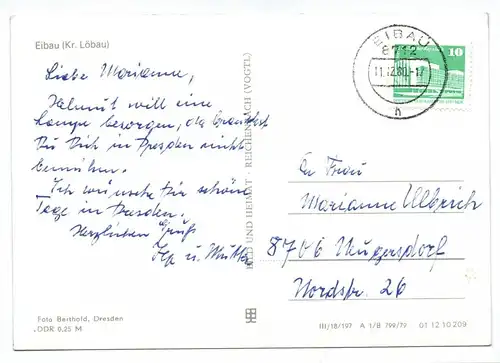 Eibau (Kr. Löbau)
Liebe Marianne,
Helmut will eine
Lampe besorgen, da brauchst
Du Dich in Dresden nicht
bemühen.
Ich wünsche Dir schöne
Tage in Dresden.
Herzlichen Gruß
u. Mutti
Foto Berthold, Dresden
DDR 0,25 M
BILD UND HEIMAT · REICHENBACH (VOGTL)
EIBAU
8712
11.12.80.-17
h
10
An Frau
Marianne Ullbrich
8706 Neugersdorf
Nordstr. 26
III/18/197 A 1/B 799/79 GT 12 10 209